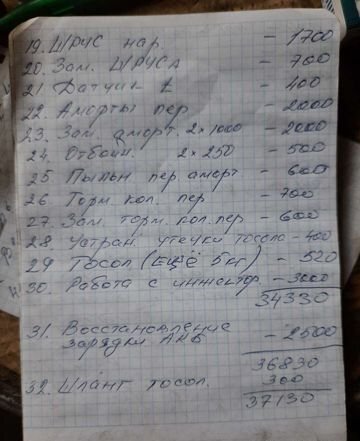 19. ШРУС нар. - 1700
20. Зам. ШРУСА - 700
21 Датчик t - 400
22. Аморты пер - 2000
23. Зам. аморт. 2x1000 - 2000
24. Отбойн. 2x250 - 500
25 Пыльн пер аморт - 600
26 Торм. кол. пер - 700
27. Зам. торм. кол. пер - 600
28. Устран. утечки тосола - 400
29 Тосол (ЕЩЁ 5кг) - 520
30. Работа с инжектор. - 3000
34330
31. Восстановление
зарядки АКБ - 2500
36830
32. Шланг тосол. 300
37130